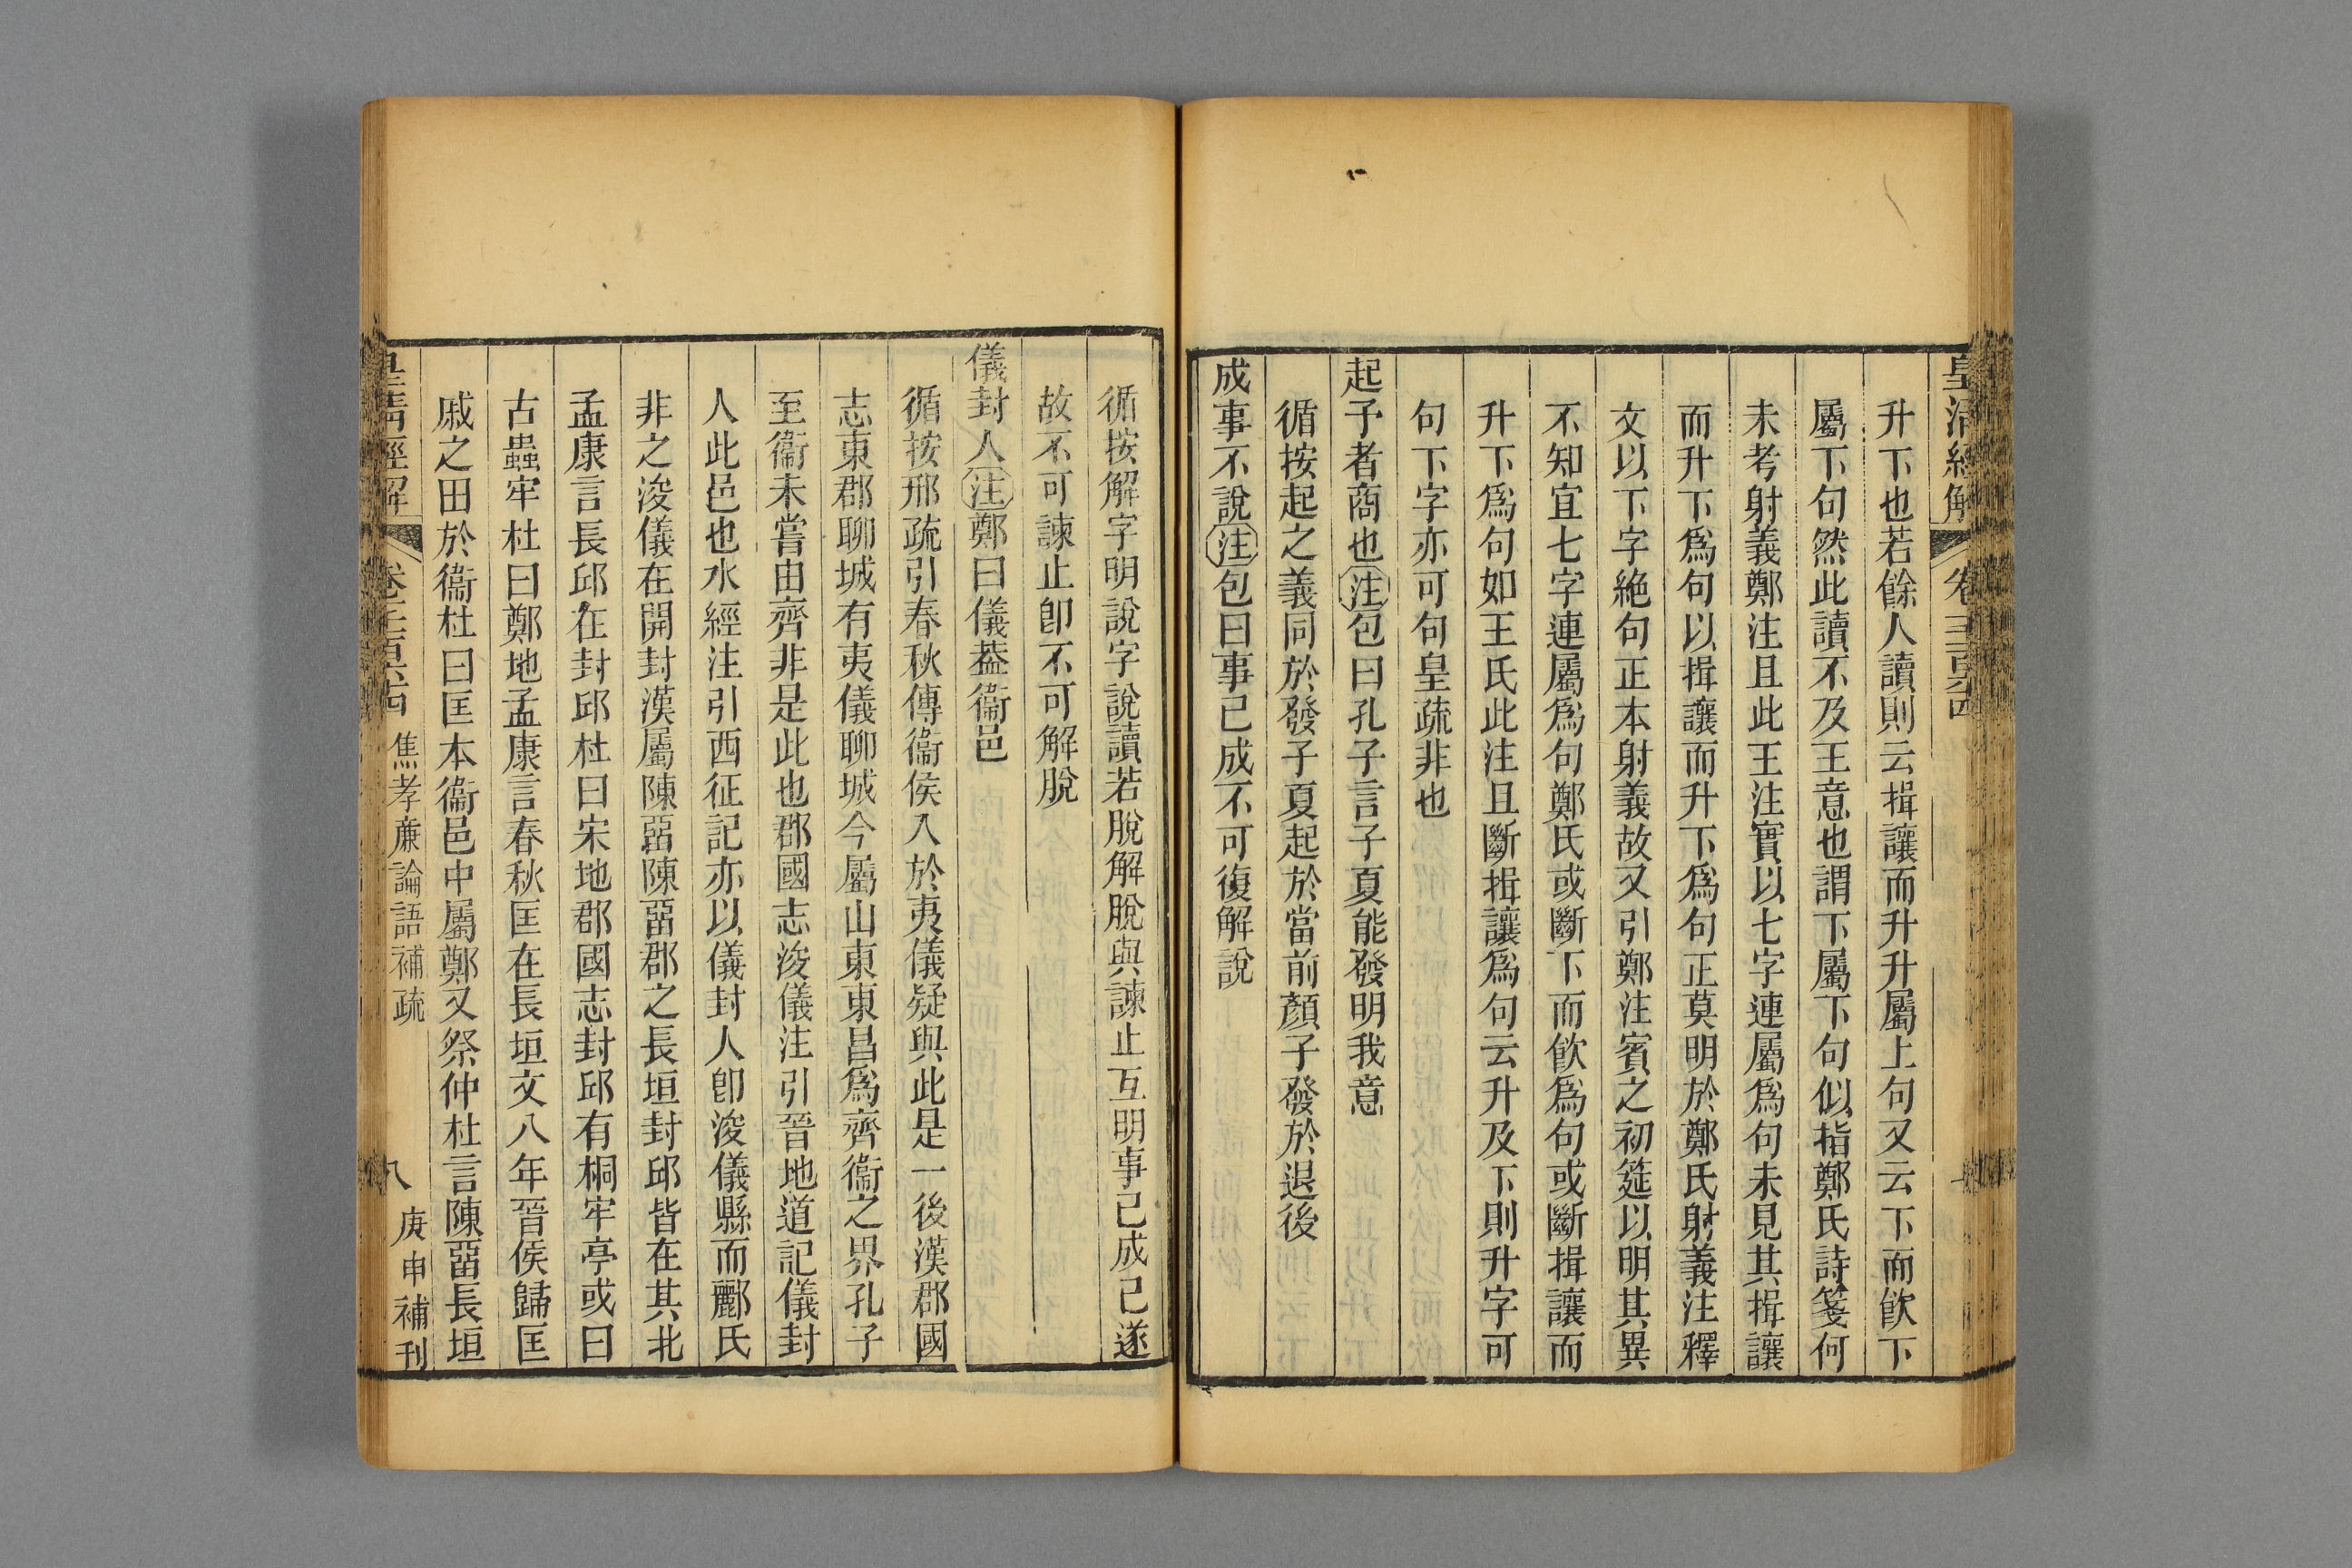 皇清經解
卷
升下也若餘人讀則云揖讓而升升屬上句又云下而飮下
屬下句然此讀不及王意也謂下屬下句似指鄭氏詩箋何
未考射義鄭注且此王注實以七字連屬爲句未見其揖讓
而升下爲句以揖讓而升下爲句正莫明於鄭氏射義注釋
文以下字絶句正本射義故又引鄭注賓之初筵以明其異
不知宜七字連屬爲句鄭氏或斷下而飮爲句或斷揖讓而
升下爲句如王氏此注且斷揖讓爲句云升及下則升字可
句下字亦可句皇疏非也
起予者商也注包曰孔子言子夏能發明我意
循按起之義同於發子夏起於當前顏子發於退後
成事不說注包曰事已成不可復解說
循按解字明說字說讀若脫解脫與諫止互明事已成已遂
故不可諫止卽不可解脫
儀封人注鄭曰儀葢衞邑
循按邢疏引春秋傳衞侯入於夷儀疑與此是一後漢郡國
志東郡聊城有夷儀聊城今屬山東東昌爲齊衞之界孔子
至衞未嘗由齊非是此也郡國志浚儀注引晉地道記儀封
人此邑也水經注引西征記亦以儀封人卽浚儀縣而酈氏
非之浚儀在開封漢屬陳畱陳畱郡之長垣封邱皆在其北
孟康言長邱在封邱杜曰宋地郡國志封邱有桐牢亭或曰
古蟲牢杜曰鄭地孟康言春秋匡在長垣文八年晉侯歸匡
戚之田於衞杜曰匡本衞邑中屬鄭又祭仲杜言陳畱長垣
皇淸經解
卷 焦孝廉論語補疏
八
庚申補刊